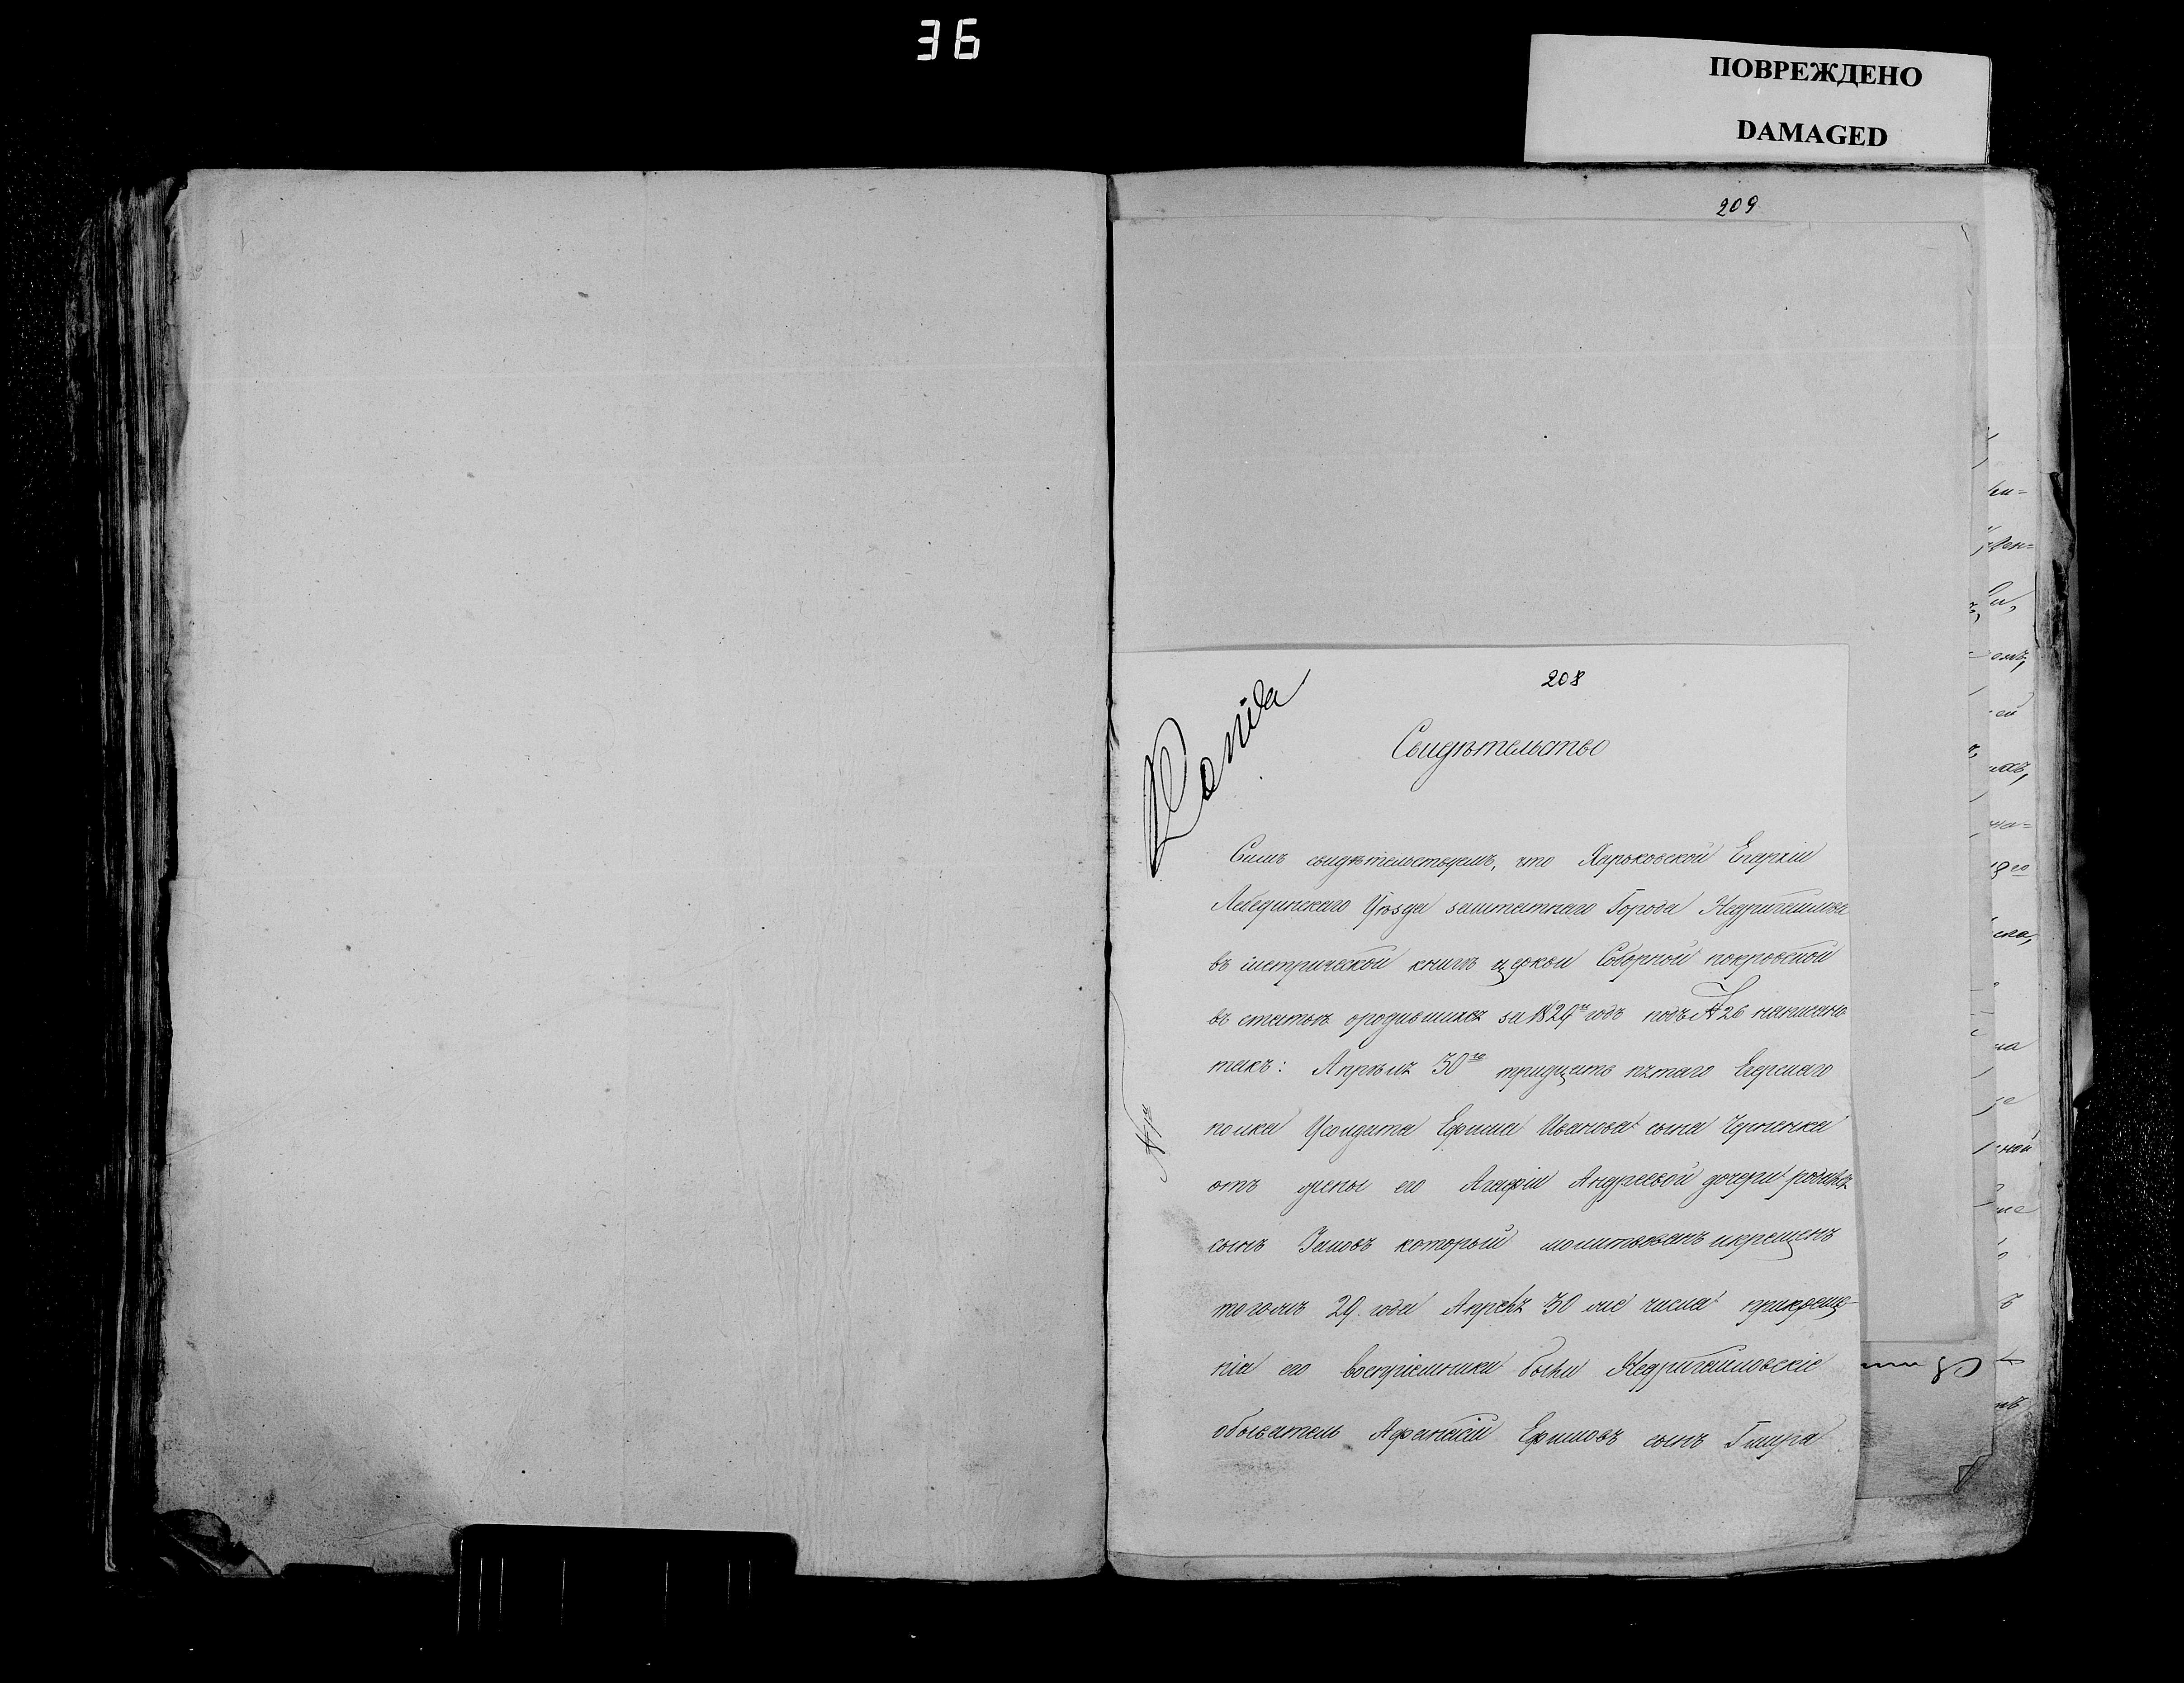 36
ПОВРЕЖДЕНО
DAMAGED
209
208
Копія
Свидѣтельство
Симъ свидѣтельствуемъ, что Харьковской Епархіи
Лебединскаго Уѣзда заштатнаго Города Недригайлова
въ метрической книгѣ церкви Соборной покровской
въ статьѣ ородившихся за 1829й годъ подъ № 26 написано
такъ: Апрѣля 30го тридцать пятаго Егерскаго
полка Усолдата Ефима Иванова сына Черненка
отъ жены его Агафіи Андреевой дочери родился
сынъ Іаковъ который молитвованъ икрещенъ
тогожъ 29. года Апрѣля 30 же числа прикреще-
ніи его воспріемники были Недригайловскіе
обыватель Афанасій Ефимовъ сынъ Гмыра